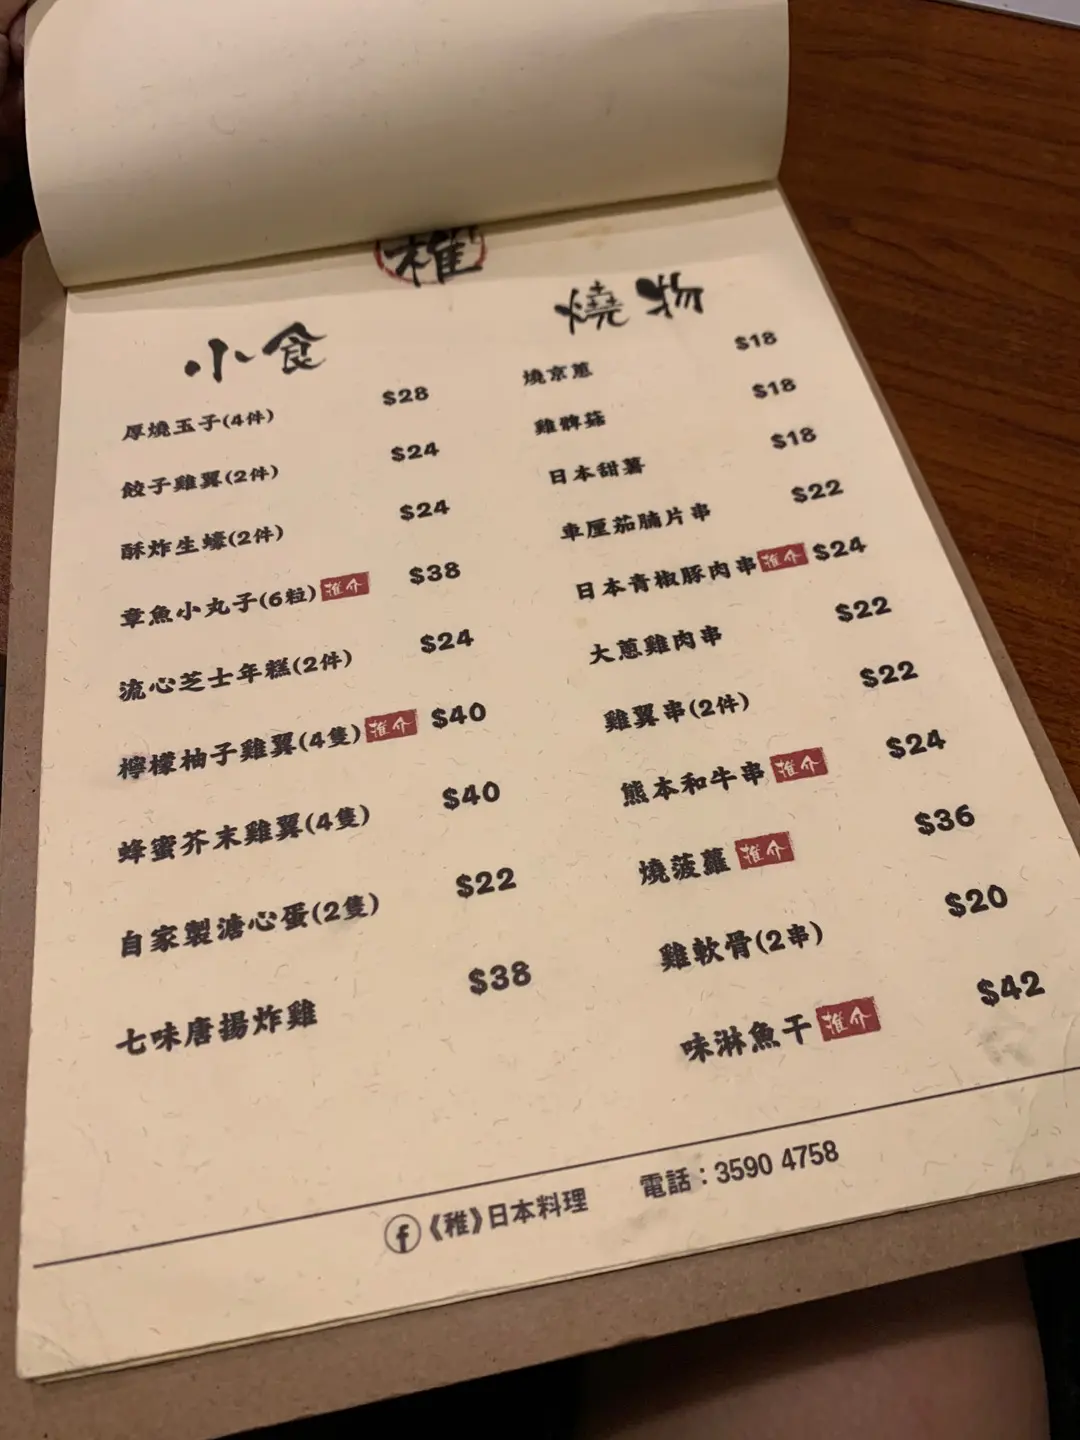 稚
小食
厚燒玉子(4件) $28
餃子雞翼(2件) $24
酥炸生蠔(2件) $24
章魚小丸子(6粒) 推介 $38
流心芝士年糕(2件) $24
檸檬柚子雞翼(4隻) 推介 $40
蜂蜜芥末雞翼(4隻) $40
自家製溏心蛋(2隻) $22
七味唐揚炸雞 $38
燒物
燒京蔥 $18
雞髀菇 $18
日本甜薯 $18
車厘茄腩片串 $22
日本青椒豚肉串 推介 $24
大蔥雞肉串 $22
雞翼串(2件) $22
熊本和牛串 推介 $24
燒菠蘿 推介 $36
雞軟骨(2串) $20
味淋魚干 推介 $42
《稚》日本料理 電話：3590 4758